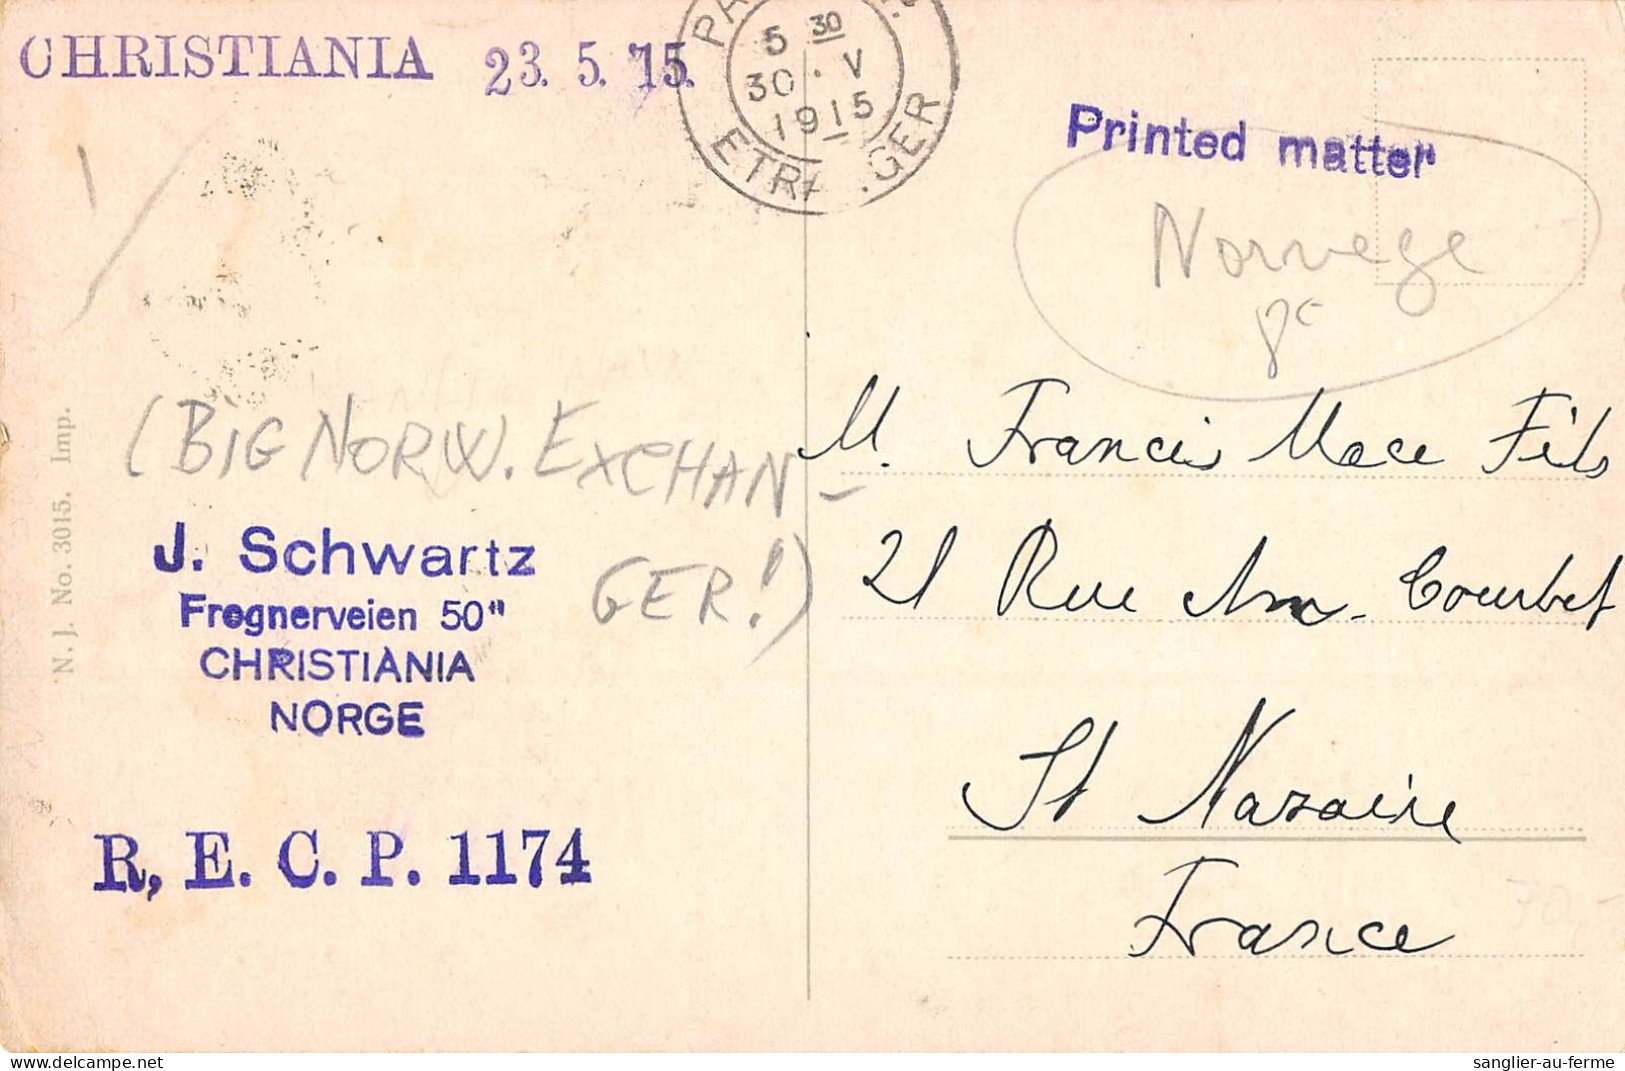 CHRISTIANIA 23. 5. 15.
5 30
30 · V
1915
ETRA GER
Printed matter
Norvege
(BIG NORW. EXCHAN-
GER!)
J. Schwartz
Frognerveien 50"
CHRISTIANIA
NORGE
R, E. C. P. 1174
N. J. No. 3015. Imp.
M. Francis Mace Fils
21 Rue Am. Courbet
St Nazaire
France
70,-
delcampe.net
sanglier-au-ferme